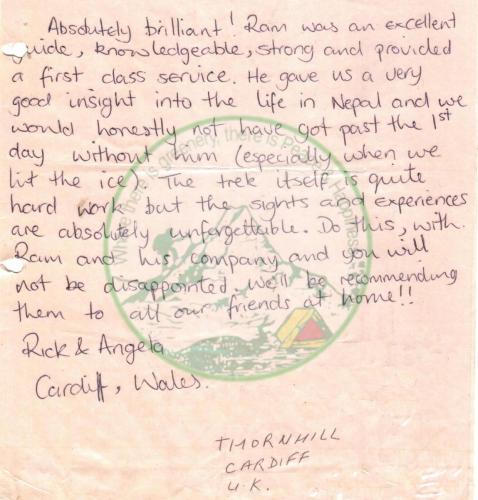 Absolutely brilliant! Ram was an excellent
guide, knowledgeable, strong and provided
a first class service. He gave us a very
good insight into the life in Nepal and we
would honestly not have got past the 1st
day without him (especially when we
hit the ice). The trek itself is quite
hard work but the sights and experiences
are absolutely unforgettable. Do this, with
Ram and his company and you will
not be disappointed. We'll be recommending
them to all our friends at home!!
Rick & Angela
Cardiff, Wales.
THORNHILL
CARDIFF
U.K.
Where there is greenery, there is Peace & Happiness